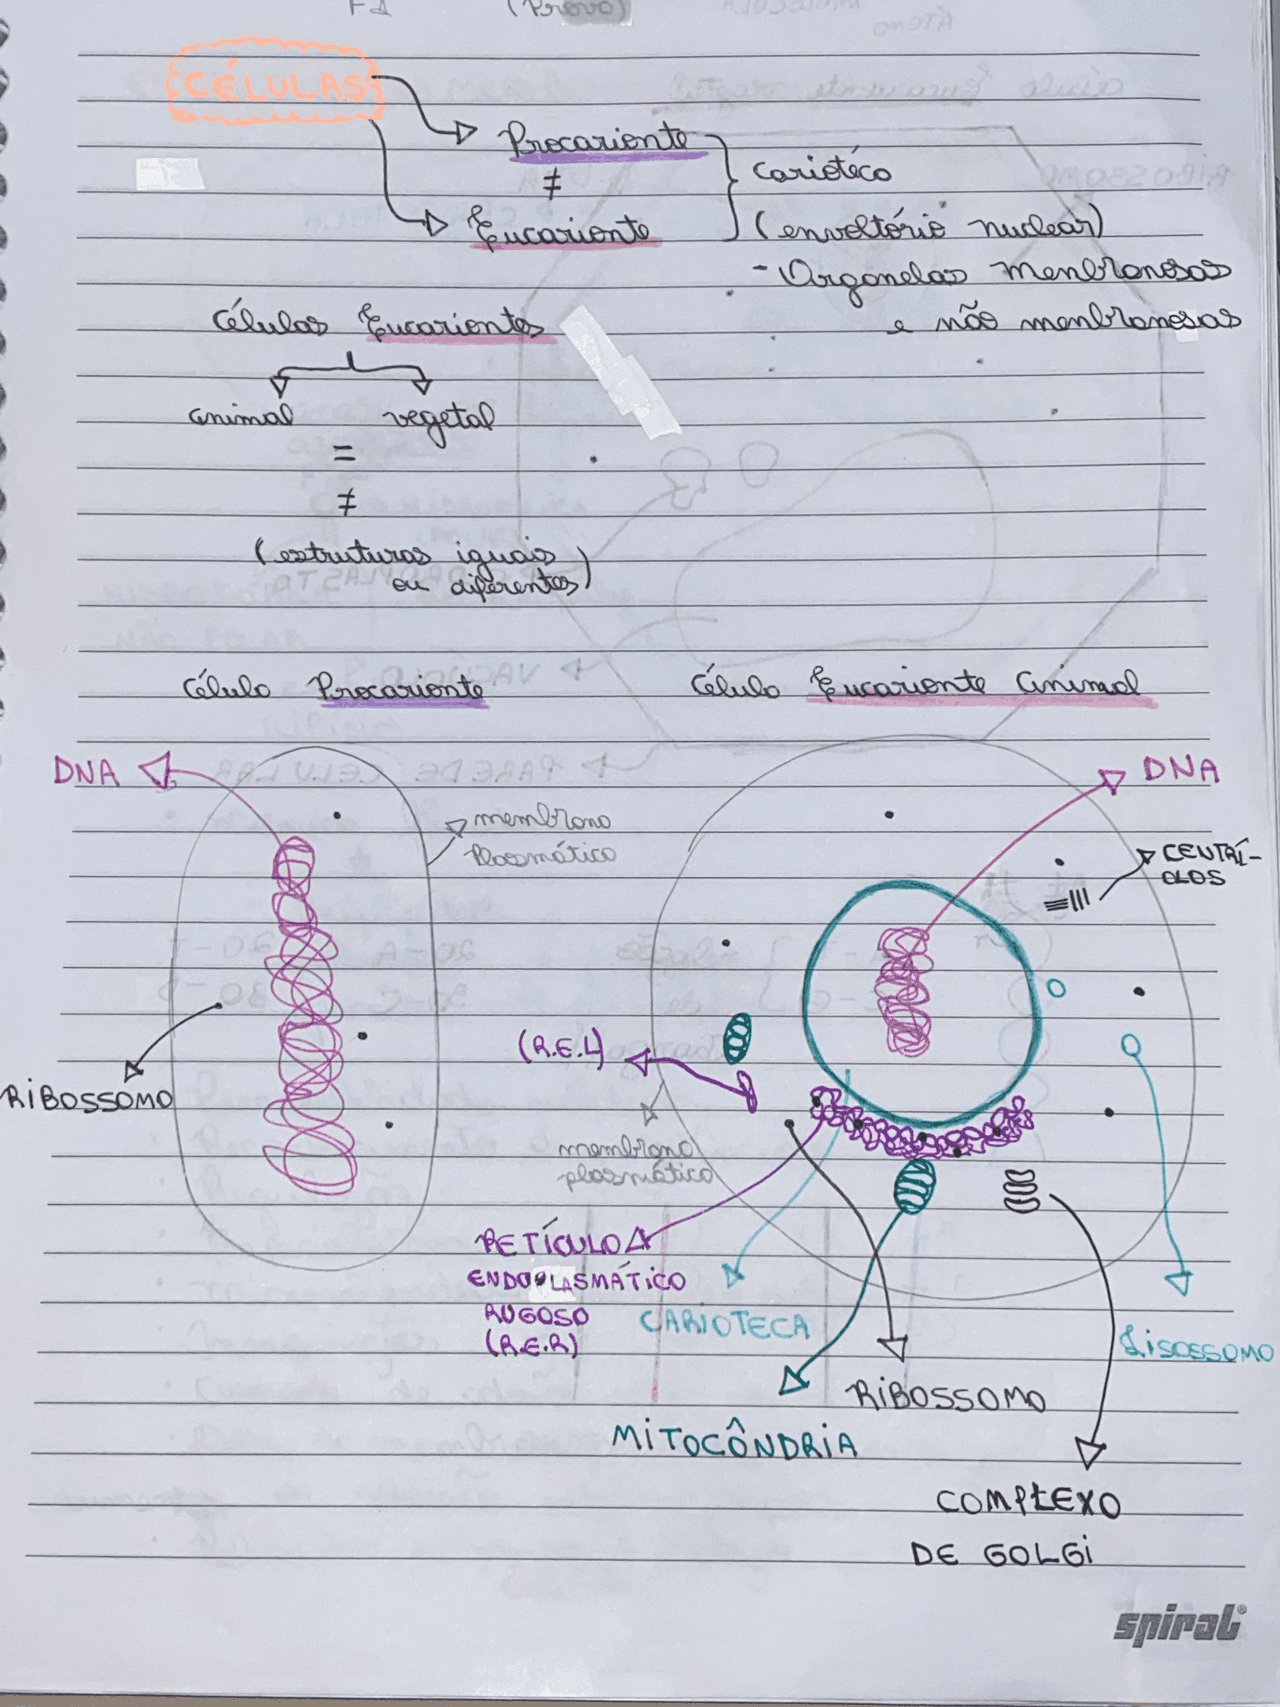 F1 (Prova)
CÉLULAS
Procarionte
≠
Eucarionte
carioteca
(envoltório nuclear)
- Organelas menbranosas
e não menbranosas
Células Eucariontes
animal vegetal
=
≠
(estruturas iguais
ou diferentes)
Célula Procarionte
Célula Eucarionte animal
DNA
membrana
plasmática
RIBOSSOMO
DNA
CENTRÍ-
OLOS
(R.E.L)
membrana
plasmática
RETÍCULO
ENDOPLASMÁTICO
RUGOSO
(R.E.R)
CARIOTECA
LISOSSOMO
RIBOSSOMO
MITOCÔNDRIA
COMPLEXO
DE GOLGI
spiral®